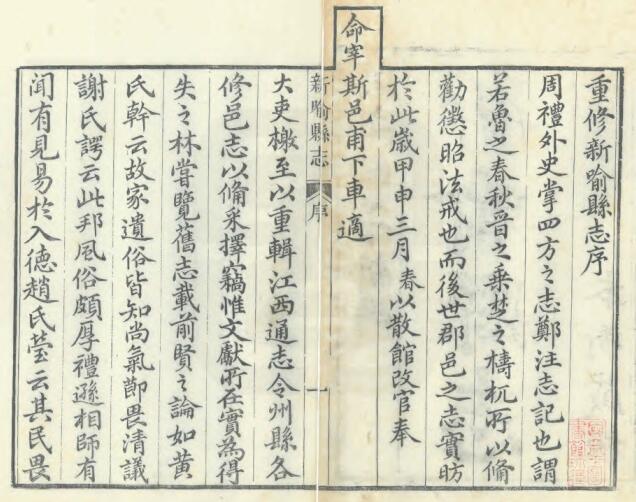 重修新喻縣志序
周禮外史掌四方之志鄭注志記也謂
若魯之春秋晉之乗楚之檮杌所以俻
勸懲昭法戒也而後世郡邑之志實昉
於此歲甲申三月春以散館改官奉
命宰斯邑甫下車適
新喻縣志 序 一
大吏檄至以重輯江西通志令州縣各
修邑志以俻采擇竊惟文獻所在實為得
失之林嘗覽舊志載前賢之論如黄
氏幹云故家遺俗皆知尚氣節畏清議
謝氏諤云此邦風俗頗厚禮遜相師有
聞有見易於入徳趙氏瑩云其民畏